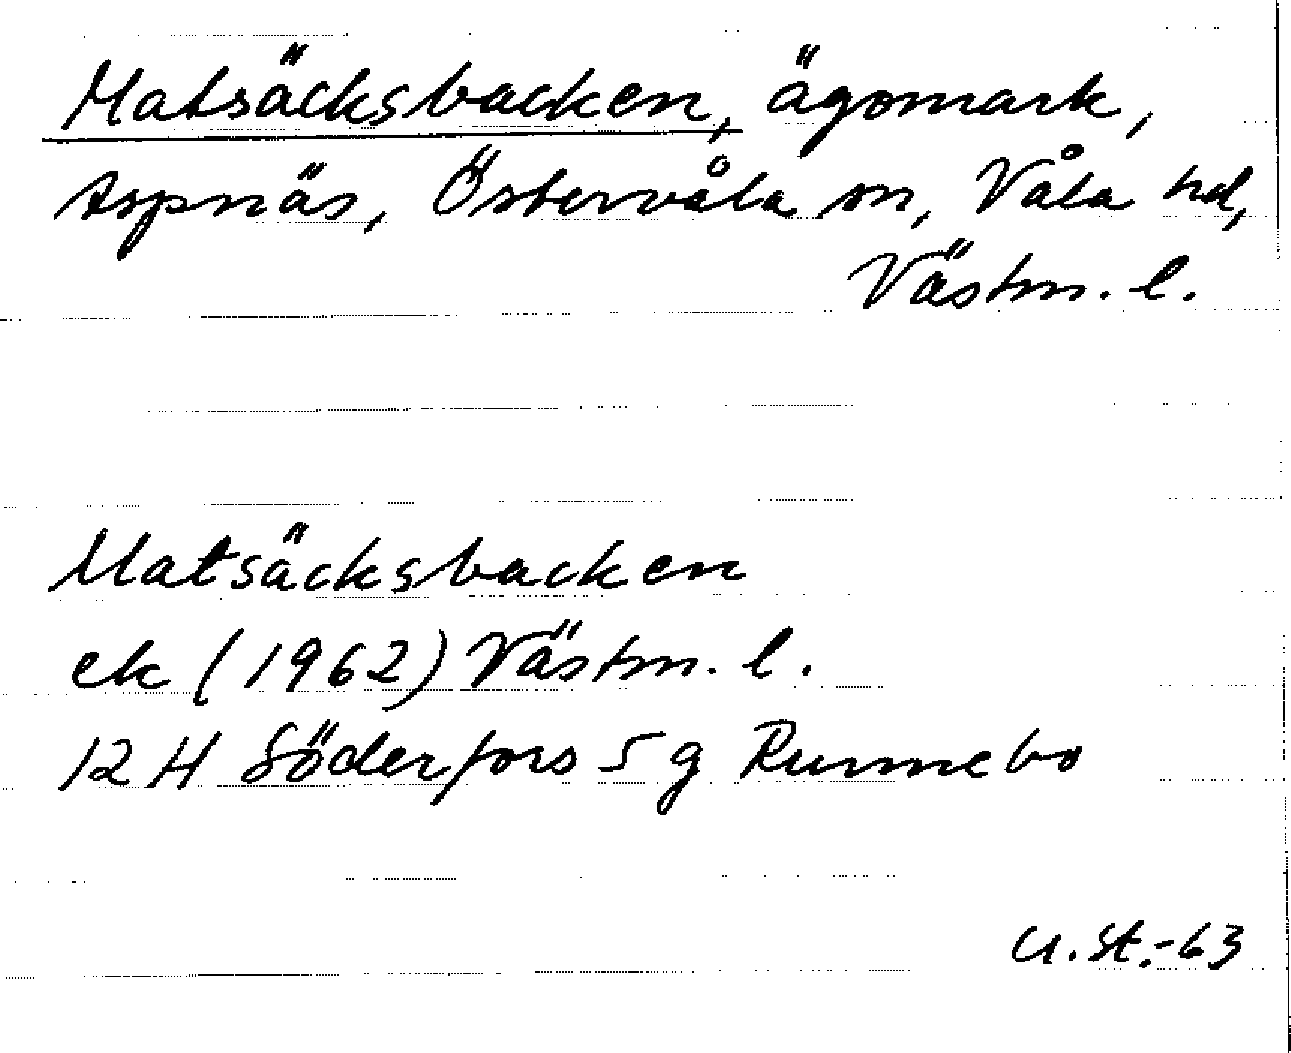 Matsäcksbacken, ägomark,
Aspnäs, Östervåla sn, Våla hd,
Västm. l.
Matsäcksbacken
ek (1962) Västm. l.
12 H Söderfors 5 g Runnebo
U. St. -63